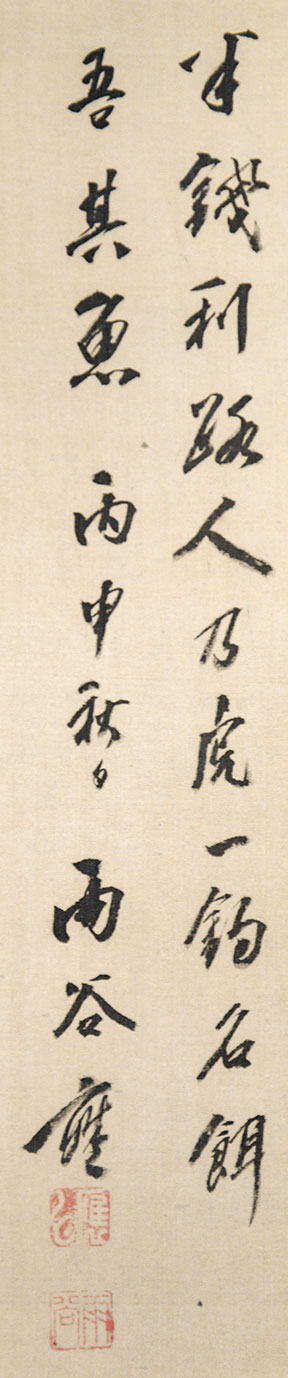 半錢利路人乃虎一鈎名餌
吾其魚 丙申秋日 雨谷